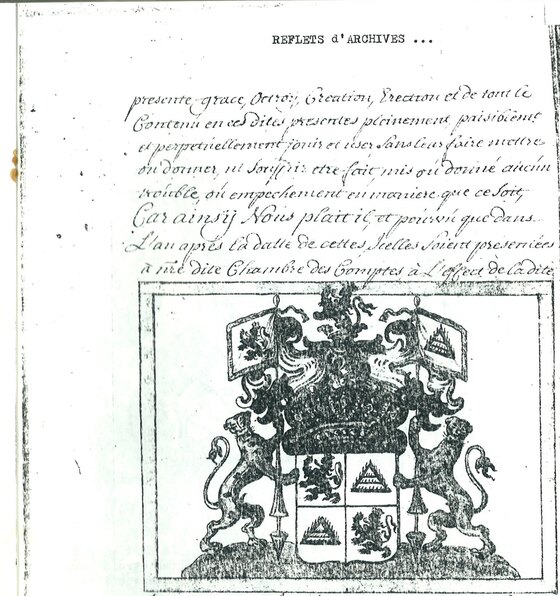 REFLETS d'ARCHIVES ...
presente grace, Octroy, Création, Erection et de tout le
Contenu en ces dites presentes pleinement, paisiblemt
et perpetuellement jouir et user sans leur faire mettre
ou donner, ni souffrir etre fait, mis ou donné aucun
trouble, ou empechement en maniere que ce soit,
Car ainsÿ Nous plait il, et pourvû que dans
L'an après la datte de cettes, Icelles soient presentées
a nre dite Chambre des Comptes à L'effect de la dite